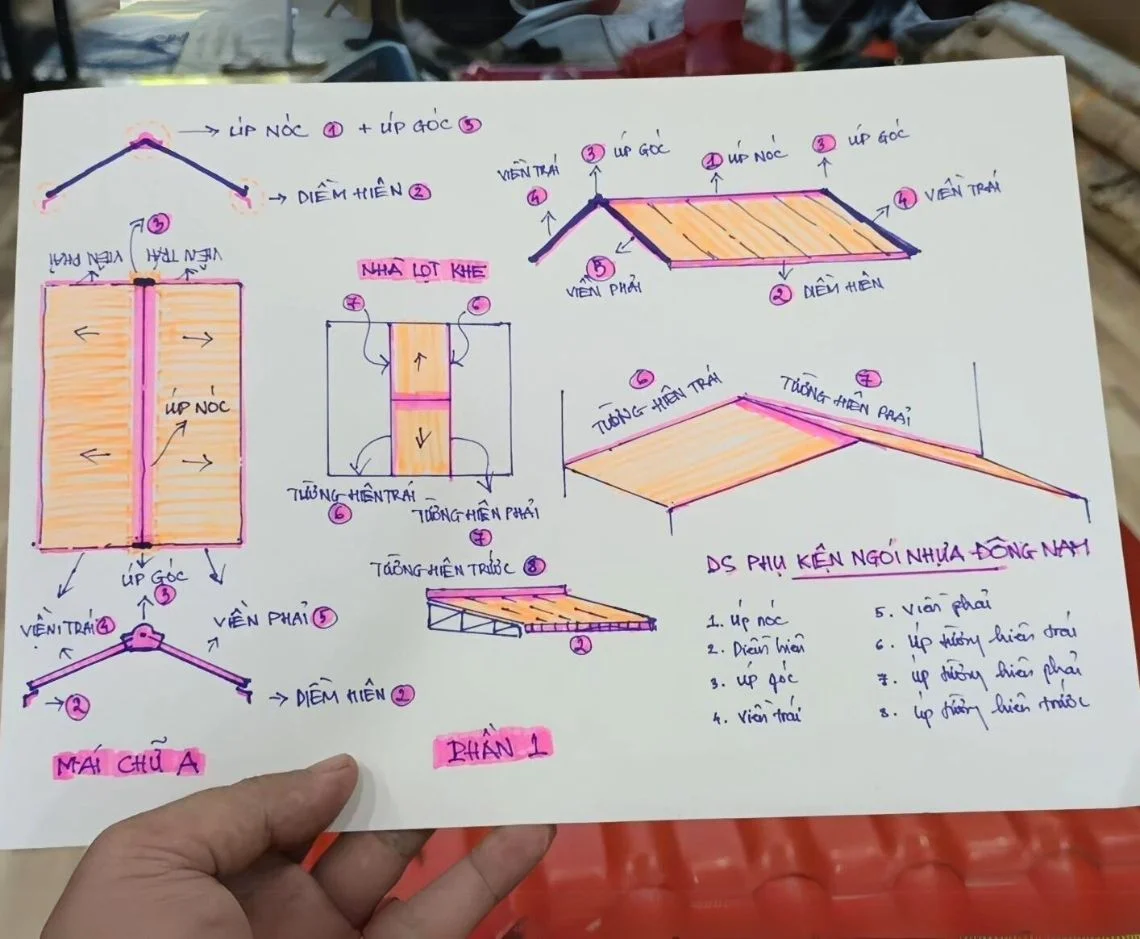 → ÚP NÓC ① + ÚP GÓC ③
→ DIỀM HIÊN ②
③
VIỀN PHẢI
VIỀN TRÁI
ÚP NÓC
ÚP GÓC
③
VIỀN TRÁI ④
VIỀN PHẢI ⑤
→ ②
→ DIỀM HIÊN ②
MÁI CHỮ A
NHÀ LỌT KHE
⑦
⑥
TƯỜNG HIÊN TRÁI
⑥
TƯỜNG HIÊN PHẢI
⑦
TƯỜNG HIÊN TRƯỚC ⑧
②
PHẦN 1
VIỀN TRÁI
④
③ ÚP GÓC
① ÚP NÓC
③ ÚP GÓC
④ VIỀN TRÁI
⑤
VIỀN PHẢI
② DIỀM HIÊN
⑥
TƯỜNG HIÊN TRÁI
⑦
TƯỜNG HIÊN PHẢI
DS PHỤ KIỆN NGÓI NHỰA ĐÔNG NAM
1. Úp nóc
2. Diềm hiên
3. Úp góc
4. Viền trái
5. Viền phải
6. Úp tường hiên trái
7. Úp tường hiên phải
8. Úp tường hiên trước